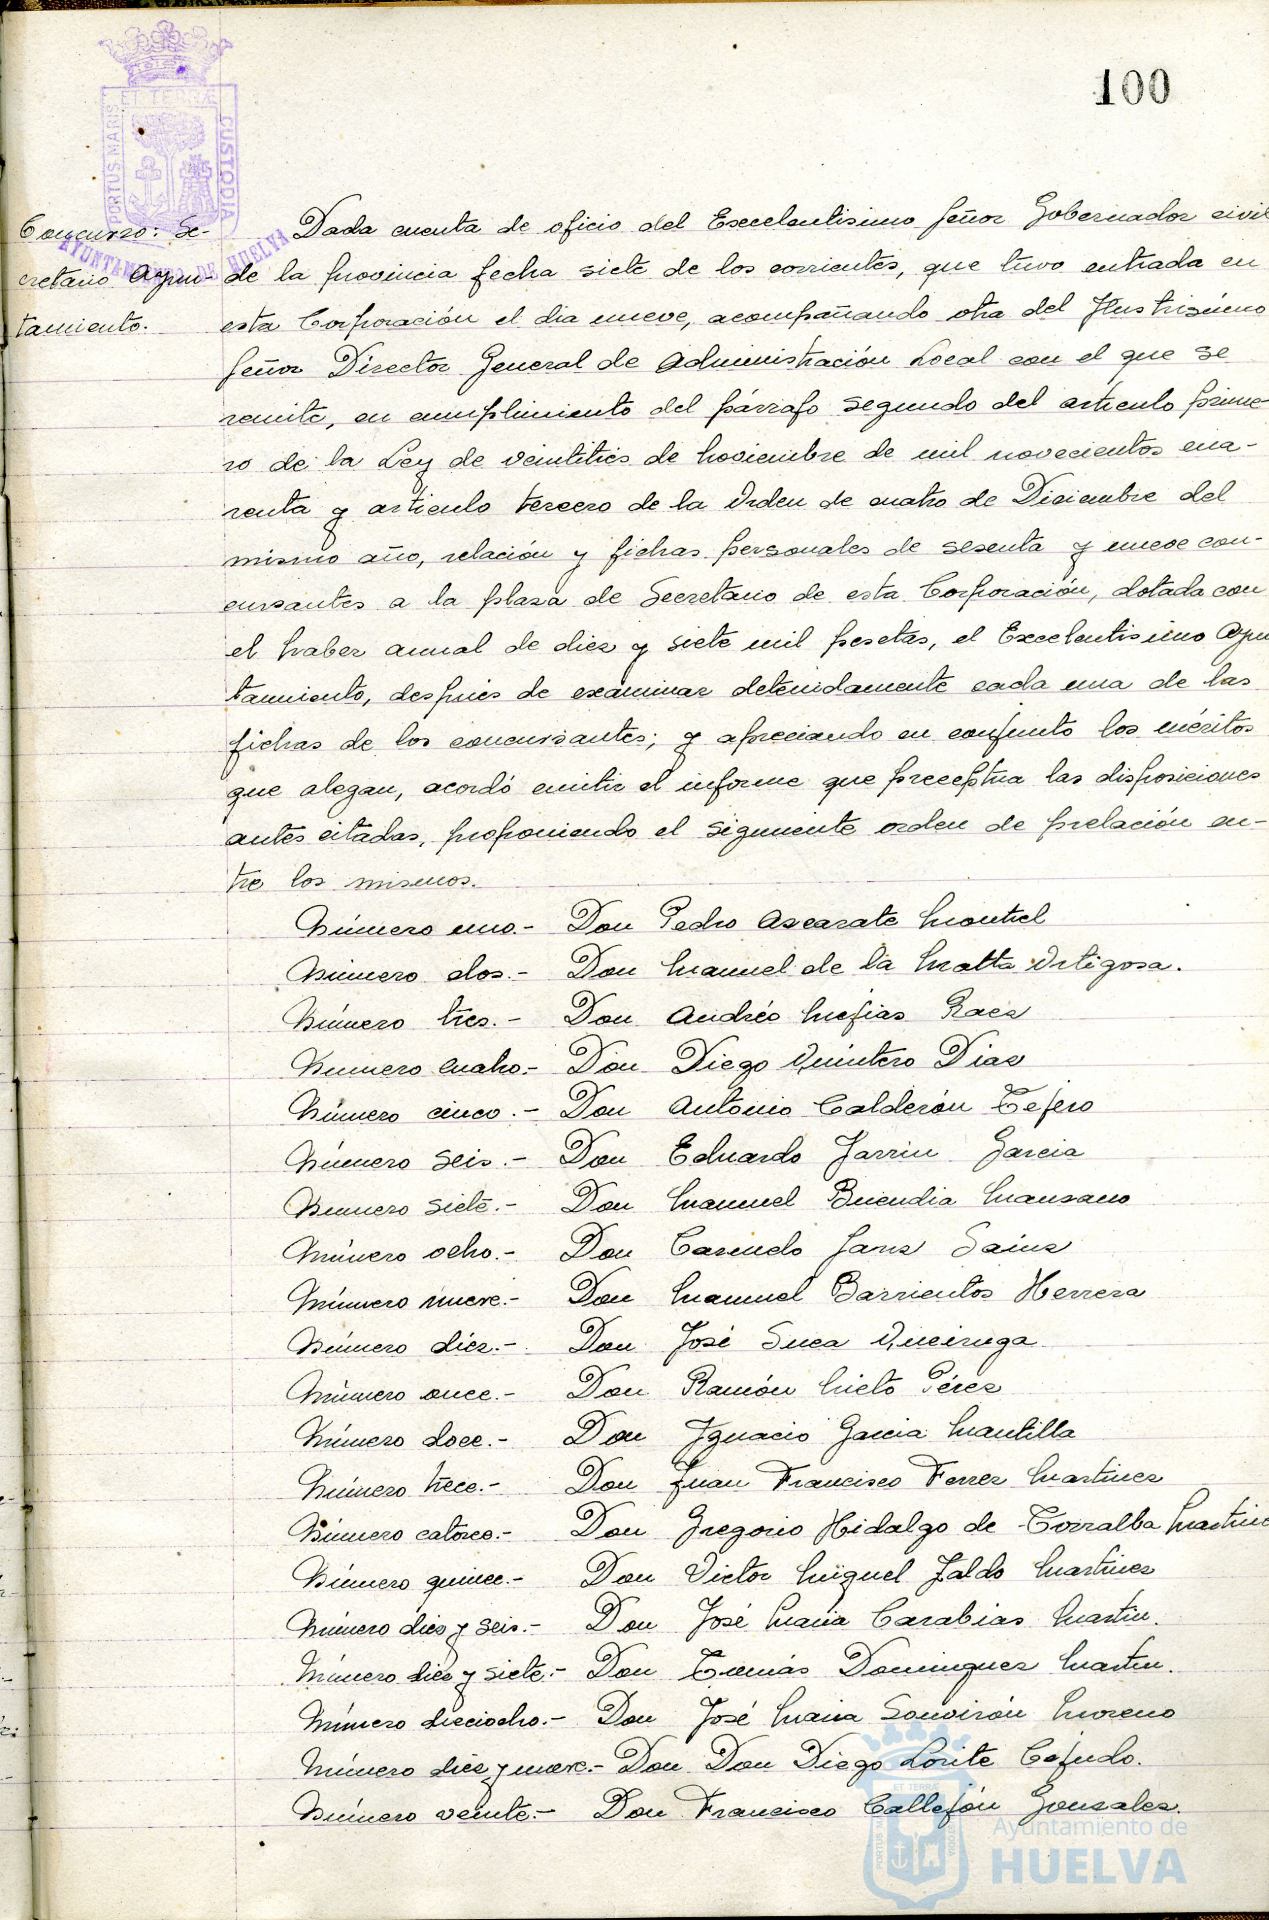 100
PORTUS MARIS ET TERRÆ CUSTODIA
AYUNTAMIENTO DE HUELVA
Concurso: Se-
cretario Ayun-
tamiento.
Dada cuenta de oficio del Excelentisimo Señor Gobernador civil
de la provincia fecha siete de los corrientes, que tuvo entrada en
esta Corporación el dia nueve, acompañando otra del Ilustrisimo
Señor Director General de Administración Local con el que se
remite, en cumplimiento del párrafo segundo del artículo prime-
ro de la Ley de veintitrés de Noviembre de mil novecientos cua-
renta y artículo tercero de la Orden de cuatro de Diciembre del
mismo año, relación y fichas personales de sesenta y nueve con-
cursantes a la plaza de Secretario de esta Corporación, dotada con
el haber anual de diez y siete mil pesetas, el Excelentisimo Ayun
tamiento, después de examinar detenidamente cada una de las
fichas de los concursantes; y apreciando en conjunto los méritos
que alegan, acordó emitir el informe que preceptua las disposiciones
antes citadas, proponiendo el siguiente orden de prelación en-
tre los mismos.
Número uno.- Don Pedro Azcarate Montiel
Número dos.- Don Manuel de la Matta Ortigosa.
Número tres.- Don Andrés Mejias Raez
Numero cuatro.- Don Diego Quintero Diaz
Número cinco.- Don Antonio Calderón Tejero
Número seis.- Don Eduardo Jarrin Garcia
Numero siete.- Don Manuel Buendia Manzano
Número ocho.- Don Casando Sanz Sainz
Número nueve.- Don Manuel Barrientos Herrera
Número diez.- Don José Suca Queiruga
Número once.- Don Ramón Nieto Pérez
Número doce.- Don Ignacio Garcia Mantilla
Número trece.- Don Juan Francisco Ferrer Martinez
Número catorce.- Don Gregorio Hidalgo de Torralba Martine
Número quince.- Don Victor Miguel Jaldo Martinez
Número diez y seis.- Don José Maria Carabias Martin.
Número diez y siete.- Don Tomás Dominguez Martin.
Número dieciocho.- Don José Maria Souvirón Moreno
Número diez y nueve.- Don Don Diego Lorite Cejudo.
Número veinte.- Don Francisco Callejón Gonzalez.
Ayuntamiento de
HUELVA